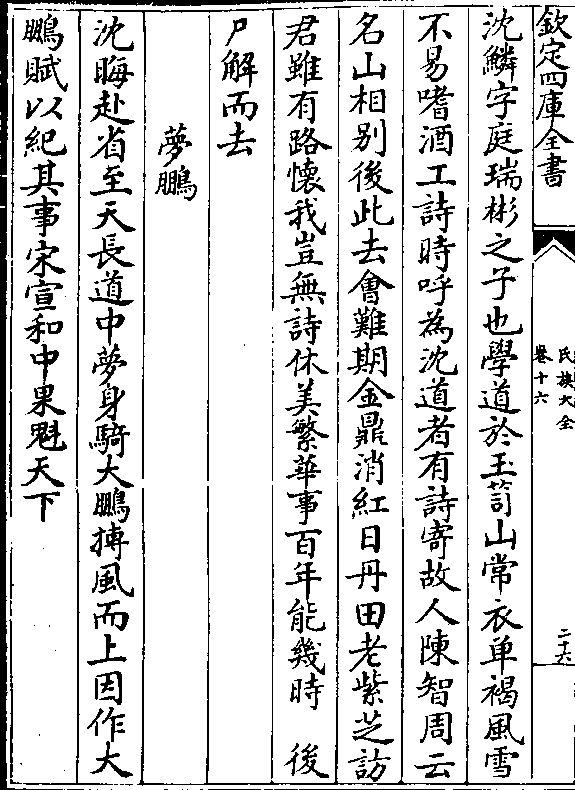 欽定四庫全書
氏族大全
卷十六
二十六
沈鱗字庭瑞彬之子也學道於玉笥山常衣单褐風雪
不易嗜酒工詩時呼為沈道者有詩寄故人陳智周云
名山相别後此去㑹難期金鼎消紅日丹田老紫芝訪
君雖有路懷我豈無詩休美繁華事百年能幾時　後
尸解而去
夢鵬
沈晦赴省至天長道中夢身騎大鵬摶風而上因作大
鵬賦以紀其事宋宣和中果魁天下